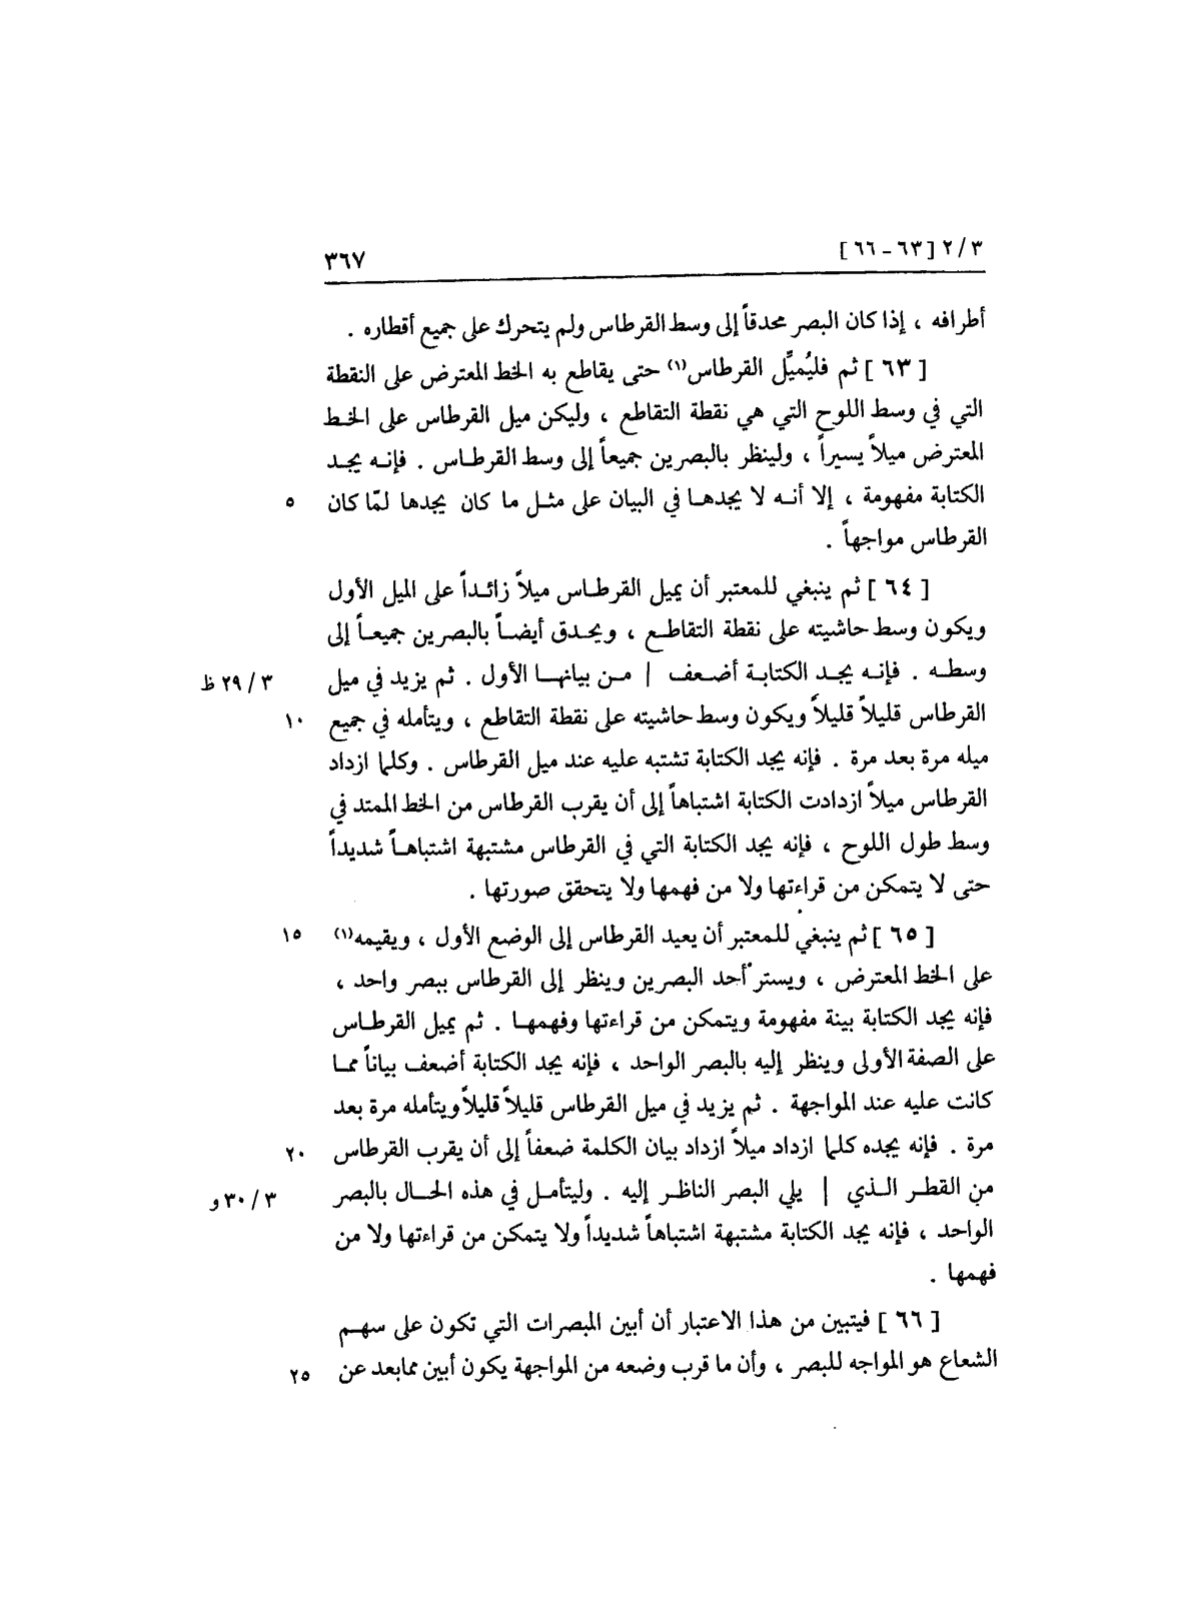 ٢/٣ [٦٣ - ٦٦]
٣٦٧
أطرافه ، إذا كان البصر محدقاً إلى وسط القرطاس ولم يتحرك على جميع أقطاره .
[ ٦٣ ] ثم فليُميِّل القرطاس(١) حتى يقاطع به الخط المعترض على النقطة
التي في وسط اللوح التي هي نقطة التقاطع ، وليكن ميل القرطاس على الخط
المعترض ميلاً يسيراً ، ولينظر بالبصرين جميعاً إلى وسط القرطاس . فإنه يجد
الكتابة مفهومة ، إلا أنه لا يجدها في البيان على مثل ما كان يجدها لمّا كان ٥
القرطاس مواجهاً .
[ ٦٤ ] ثم ينبغي للمعتبر أن يميل القرطاس ميلاً زائداً على الميل الأول
ويكون وسط حاشيته على نقطة التقاطع ، ويحدق أيضاً بالبصرين جميعاً إلى
وسطه . فإنه يجد الكتابة أضعف | من بيانها الأول . ثم يزيد في ميل ٣ / ٢٩ ظ
القرطاس قليلاً قليلاً ويكون وسط حاشيته على نقطة التقاطع ، ويتأمله في جميع ١٠
ميله مرة بعد مرة . فإنه يجد الكتابة تشتبه عليه عند ميل القرطاس . وكلما ازداد
القرطاس ميلاً ازدادت الكتابة اشتباهاً إلى أن يقرب القرطاس من الخط الممتد في
وسط طول اللوح ، فإنه يجد الكتابة التي في القرطاس مشتبهة اشتباهاً شديداً
حتى لا يتمكن من قراءتها ولا من فهمها ولا يتحقق صورتها .
[ ٦٥ ] ثم ينبغي للمعتبر أن يعيد القرطاس إلى الوضع الأول ، ويقيمه(١) ١٥
على الخط المعترض ، ويستر أحد البصرين وينظر إلى القرطاس ببصر واحد ،
فإنه يجد الكتابة بينة مفهومة ويتمكن من قراءتها وفهمها . ثم يميل القرطاس
على الصفة الأولى وينظر إليه بالبصر الواحد ، فإنه يجد الكتابة أضعف بياناً مما
كانت عليه عند المواجهة . ثم يزيد في ميل القرطاس قليلاً قليلاً ويتأمله مرة بعد
مرة . فإنه يجده كلما ازداد ميلاً ازداد بيان الكلمة ضعفاً إلى أن يقرب القرطاس ٢٠
من القطر الذي | يلي البصر الناظر إليه . وليتأمل في هذه الحال بالبصر ٣ / ٣٠ و
الواحد ، فإنه يجد الكتابة مشتبهة اشتباهاً شديداً ولا يتمكن من قراءتها ولا من
فهمها .
[ ٦٦ ] فيتبين من هذا الاعتبار أن أبين المبصرات التي تكون على سهم
الشعاع هو المواجه للبصر ، وأن ما قرب وضعه من المواجهة يكون أبين مما بعد عن ٢٥